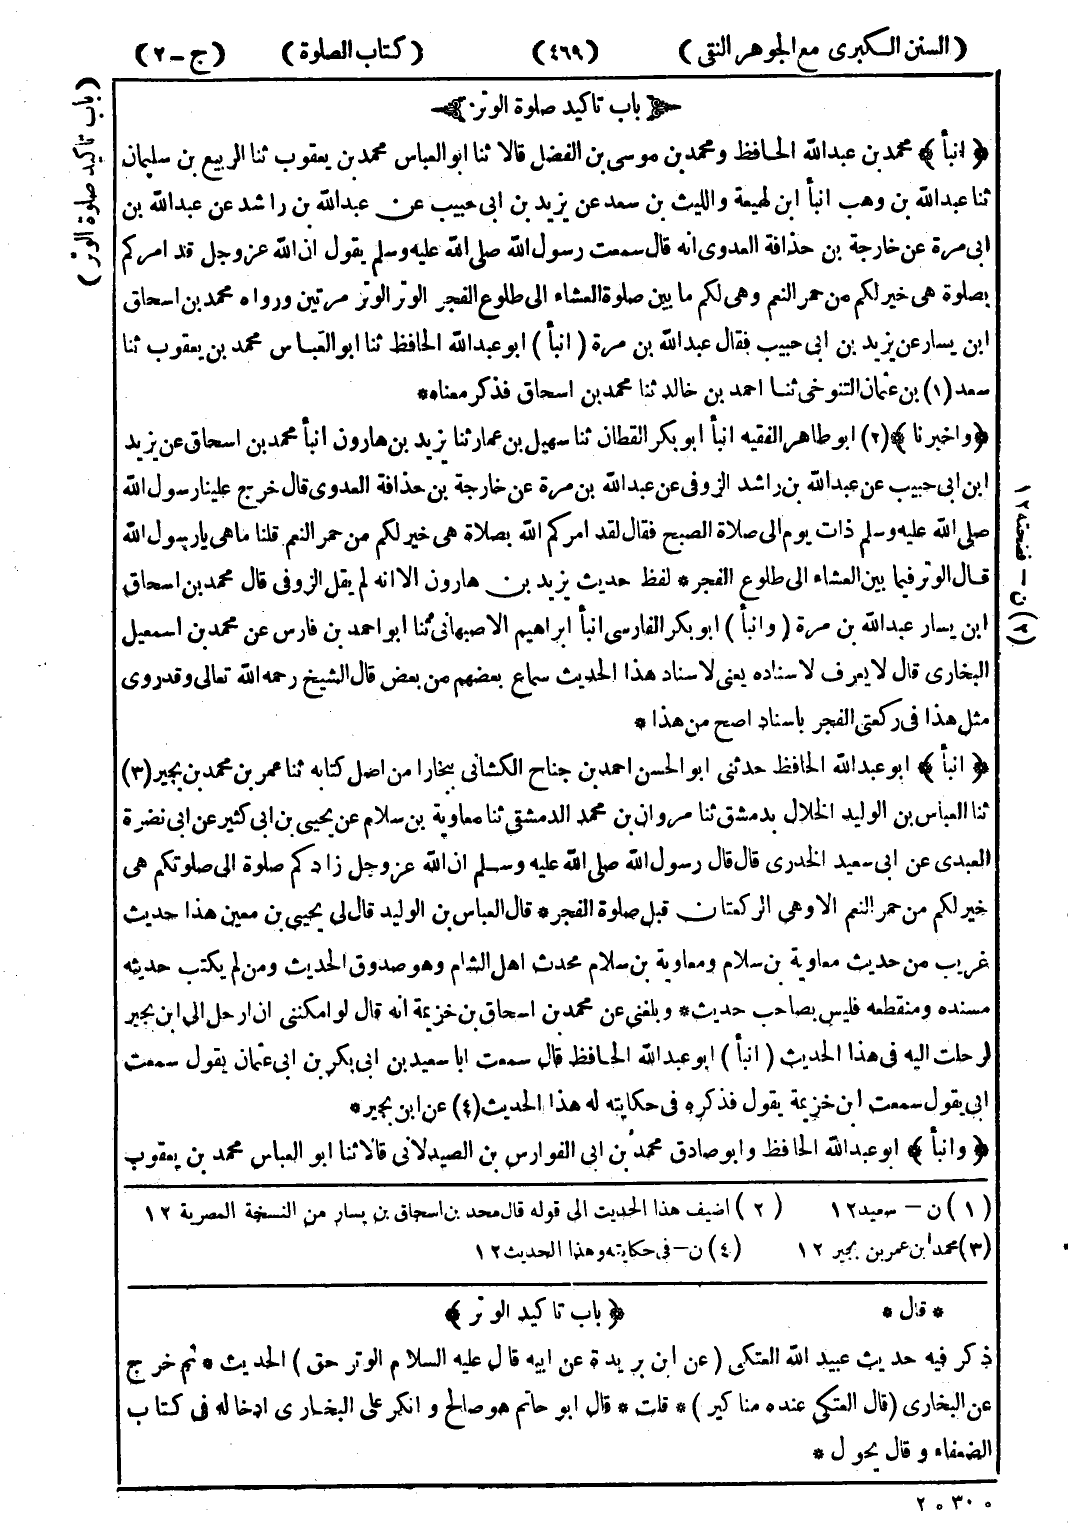 (السنن الكبرى مع الجوهر النقى) (٤٦٩) (كتاب الصلوة) (ج-٢)
باب تاكيد صلوة الوتر
(باب تاكيد صلوة الوتر)
﴿ انبأ ﴾ محمد بن عبدالله الحافظ ومحمد بن موسى بن الفضل قالا ثنا ابوالعباس محمد بن يعقوب ثنا الربيع بن سليمان
ثنا عبدالله بن وهب انبأ ابن لهيعة والليث بن سعد عن يزيد بن ابى حبيب عن عبدالله بن راشد عن عبدالله بن
ابى مرة عن خارجة بن حذافة العدوى انه قال سمعت رسول الله صلى الله عليه وسلم يقول ان الله عز وجل قد امركم
بصلوة هى خير لكم من حمر النعم وهى لكم ما بين صلوة العشاء الى طلوع الفجر الوتر الوتر مرتين ورواه محمد بن اسحاق
ابن يسار عن يزيد بن ابى حبيب فقال عبدالله بن مرة ( انبأ ) ابو عبدالله الحافظ ثنا ابوالعباس محمد بن يعقوب ثنا
سعد (١) بن عثمان التنوخى ثنا احمد بن خالد ثنا محمد بن اسحاق فذكر معناه*
﴿واخبرنا ﴾(٢) ابو طاهر الفقيه انبأ ابوبكر القطان ثنا سهيل بن عمار ثنا يزيد بن هارون انبأ محمد بن اسحاق عن يزيد
ابن ابى حبيب عن عبدالله بن راشد الزوفى عن عبدالله بن مرة عن خارجة بن حذافة العدوى قال خرج علينا رسول الله
صلى الله عليه وسلم ذات يوم الى صلاة الصبح فقال لقد امركم الله بصلاة هى خير لكم من حمر النعم قلنا ماهى يا رسول الله
قال الوتر فيما بين العشاء الى طلوع الفجر * لفظ حديث يزيد بن هارون الا انه لم يقل الزوفى قال محمد بن اسحاق
ابن يسار عبدالله بن مرة ( وانبأ ) ابوبكر الفارسى انبأ ابراهيم الاصبهانى ثنا ابو احمد بن فارس عن محمد بن اسمعيل
البخارى قال لا يعرف لاسناده يعنى لاسناد هذا الحديث سماع بعضهم من بعض قال الشيخ رحمه الله تعالى وقد روى
مثل هذا فى ركعتى الفجر باسناد اصح من هذا *
﴿ انبأ ﴾ ابو عبدالله الحافظ حدثنى ابو الحسن احمد بن جناح الكشانى ببخارا من اصل كتابه ثنا عمر بن محمد بن بجير (٣)
ثنا العباس بن الوليد الخلال بدمشق ثنا مروان بن محمد الدمشقى ثنا معاوية بن سلام عن يحيى بن ابى كثير عن ابى نضرة
العبدى عن ابى سعيد الخدرى قال قال رسول الله صلى الله عليه وسلم ان الله عز وجل زادكم صلوة الى صلوتكم هى
خير لكم من حمر النعم الا وهى الركعتان قبل صلوة الفجر * قال العباس بن الوليد قال لى يحيى بن معين هذا حديث
غريب من حديث معاوية بن سلام ومعاوية بن سلام محدث اهل الشام وهو صدوق الحديث ومن لم يكتب حديثه
مسنده ومنقطعه فليس بصاحب حديث * وبلغنى عن محمد بن اسحاق بن خزيمة انه قال لو امكننى ان ارحل الى ابن بجير
لرحلت اليه فى هذا الحديث ( انبأ ) ابو عبدالله الحافظ قال سمعت ابا سعيد بن ابى بكر بن ابى عثمان يقول سمعت
ابى يقول سمعت ابن خزيمة يقول فذكره فى حكايته له هذا الحديث (٤) عن ابن بجير *
﴿ وانبأ ﴾ ابو عبدالله الحافظ وابو صادق محمد بن ابى الفوارس بن الصيدلانى قالا ثنا ابو العباس محمد بن يعقوب
(٢) ن - فضحته ١٢
(١) ن - سعيد ١٢ (٢) اضيف هذا الحديث الى قوله قال محمد بن اسحاق بن يسار من النسخة المصرية ١٢
(٣) محمد بن عمر بن بجير ١٢ (٤) ن - فى حكايته وهذا الحديث ١٢
* قال * ﴿ باب تاكيد الوتر ﴾
ذكر فيه حديث عبيد الله العتكى ( عن ابن بريدة عن ابيه قال عليه السلام الوتر حق ) الحديث * ثم خرج
عن البخارى (قال العتكى عنده مناكير ) * قلت * قال ابو حاتم هو صالح و انكر على البخارى ادخاله فى كتاب
الضعفاء و قال يحول *
٢٠٣٠٠